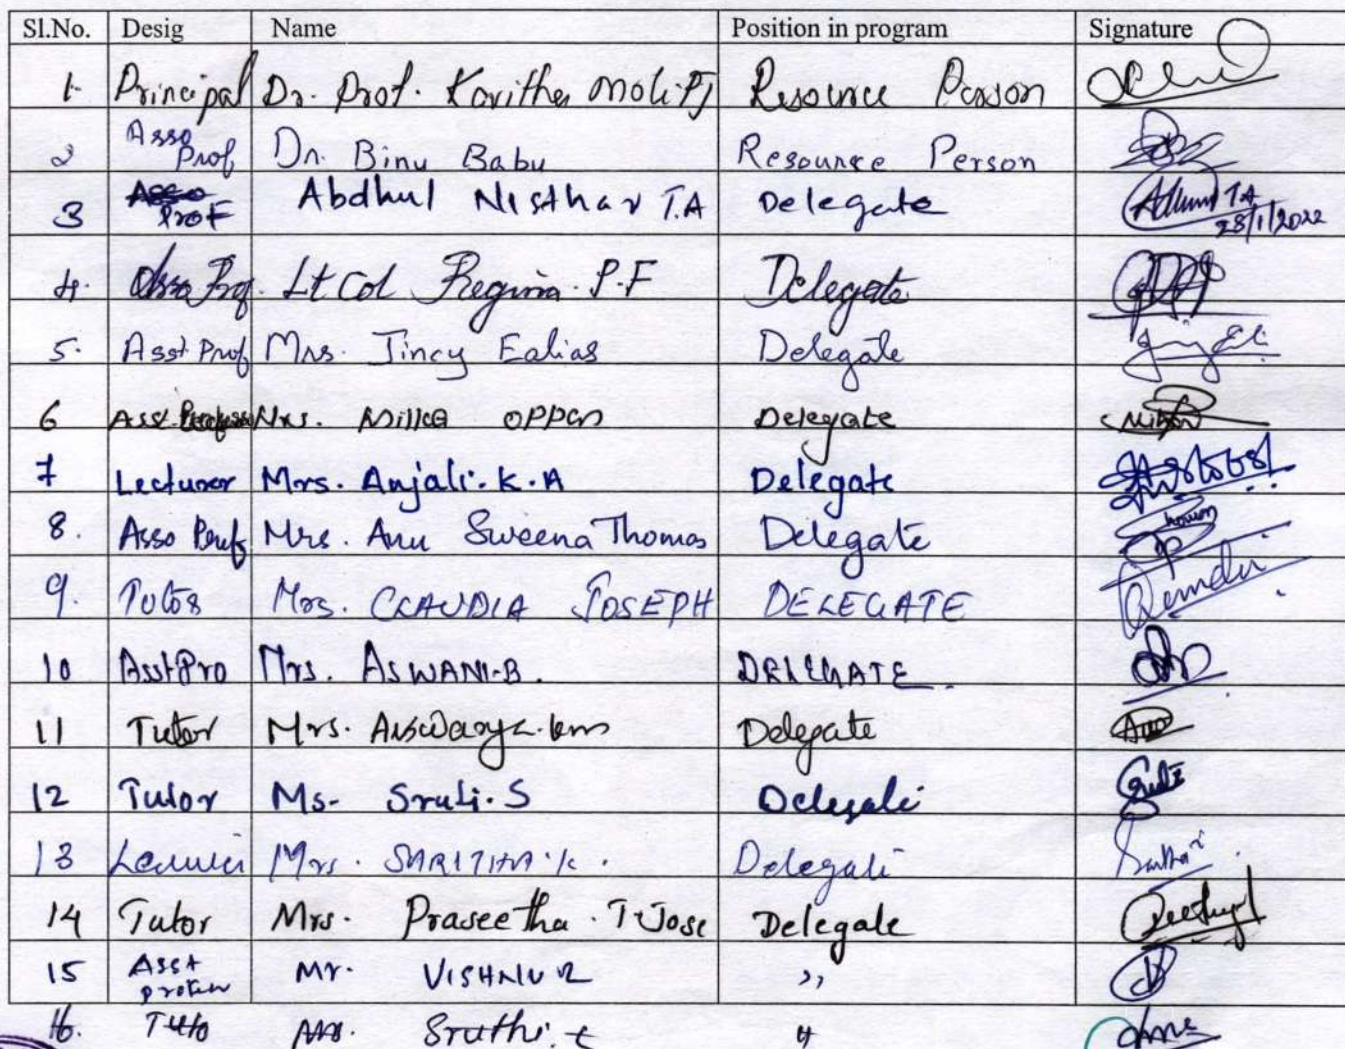 Sl.No. Desig Name Position in program Signature
1. Principal Dr. Prof. Kavitha Mol.P.J Resource Person
2 Asso Prof Dr. Binu Babu Resource Person
3 Prof Abdhul Nisthar T.A Delegate 28/1/2022
4. Asso Prof. Lt Col Regina. P.F Delegate
5. Asst Prof Mrs. Jincy Ealias Delegate
6 Asst. Mrs. Delegate
7 Lecturer Mrs. Anjali. K. A Delegate
8. Asso Prof Mrs. Anu Sweena Thomas Delegate
9. Tutor Mrs. CLAUDIA JOSEPH DELEGATE
10 Asst Pro Mrs. ASWANI.B. DELEGATE.
11 Tutor Mrs. Delegate
12 Tutor Ms. Sruti. S Delegate
13 Mrs. SARITHA.K. Delegate
14 Tutor Mrs. Praseetha. T. Jose Delegate
15 Asst Mr. VISHNU R ,,
16. Tuto Sruthi. ,,